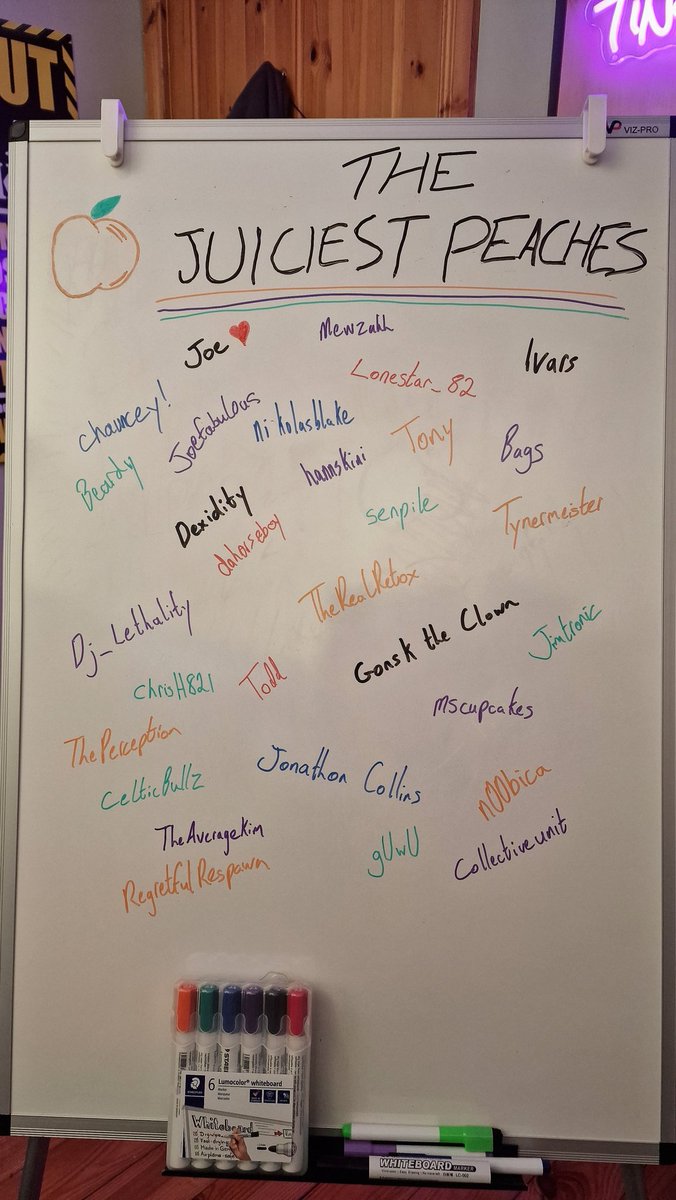 UT
TIN
VIZ-PRO
THE
JUICIEST PEACHES
Joe
Mewzahh
Ivars
Lonestar_82
chauncey!
Joefabulous
nikolasblake
Tony
Bags
Beardy
hannskini
Dexidity
senpile
Tynermeister
dahorseboy
TheRealRetrox
Dj_Lethality
Gonsk the Clown
Jimtronic
chrisH821
Todd
mscupcakes
ThePerception
Jonathon Collins
CelticBullz
n00bica
TheAverageKim
gUwU
Collectiveunit
RegretfulRespawn
6 Lumocolor® whiteboard
Whiteboard
WHITEBOARD MARKER